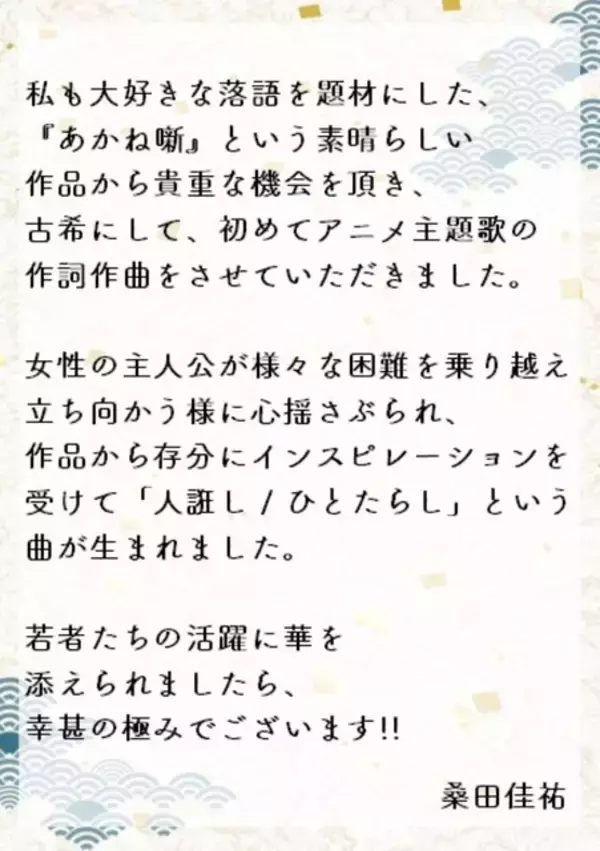 私も大好きな落語を題材にした、
『あかね噺』という素晴らしい
作品から貴重な機会を頂き、
古希にして、初めてアニメ主題歌の
作詞作曲をさせていただきました。
女性の主人公が様々な困難を乗り越え
立ち向かう様に心揺さぶられ、
作品から存分にインスピレーションを
受けて「人誑し / ひとたらし」という
曲が生まれました。
若者たちの活躍に華を
添えられましたら、
幸甚の極みでございます!!
桑田佳祐